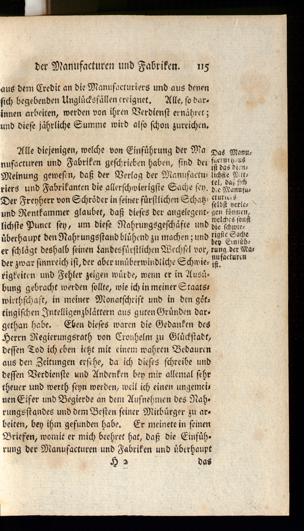 der Manufacturen und Fabriken. 115
aus dem Credit an die Manufacturiers und aus denen
sich begebenden Unglücksfällen ereignet. Alle, so dar-
innen arbeiten, werden von ihren Verdienst ernähret;
und diese jährliche Summe wird also schon zureichen.
Alle diejenigen, welche von Einführung der Ma
nufacturen und Fabriken geschrieben haben, sind der
Meinung gewesen, daß der Verlag der Manufactu-
riers und Fabrikanten die allerschwierigste Sache sey.
Der Freyherr von Schröder in seiner fürstlichen Schatz-
und Rentkammer glaubet, daß dieses der angelegent-
lichste Punct sey, um diese Nahrungsgeschäfte und
überhaupt den Nahrungsstand blühend zu machen; und
er schlägt deshalb seinen landesfürstlichen Wechsel vor,
der zwar sinnreich ist, der aber unüberwindliche Schwie-
rigkeiten und Fehler zeigen würde, wenn er in Ausü-
bung gebracht werden sollte, wie ich in meiner Staats-
wirthschaft, in meiner Monatschrift und in den göt-
tingischen Intelligenzblättern aus guten Gründen dar-
gethan habe. Eben dieses waren die Gedanken des
Herrn Regierungsrath von Cronhelm zu Glückstadt,
dessen Tod ich eben jetzt mit einem wahren Bedauern
aus den Zeitungen ersehe, da ich dieses schreibe und
dessen Verdienste und Andenken bey mir allemal sehr
theuer und werth seyn werden, weil ich einen ungemei-
nen Eifer und Begierde an dem Aufnehmen des Nah-
rungsstandes und dem Besten seiner Mitbürger zu ar-
beiten, bey ihm gefunden habe. Er meinete in seinen
Briefen, womit er mich beehret hat, daß die Einfüh-
rung der Manufacturen und Fabriken und überhaupt
H 2 das
Das Manu-
ist das dien-
lichste Mit-
tel, daß sich
die Manufa-
selbst verle-
gen können,
welches sonst
die schwie-
rigste Sache
bey Einfüh-
rung der Ma-
nufacturen
ist.